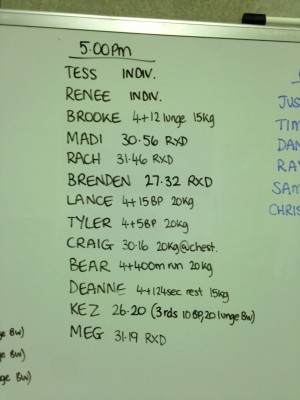 5.00pm
TESS INDIV.
RENEE INDIV.
BROOKE 4+12 lunge 15kg
MADI 30.56 RXD
RACH 31.46 RXD
BRENDEN 27.32 RXD
LANCE 4+15BP 20kg
TYLER 4+5BP 20kg
CRAIG 30.16 20kg@chest.
BEAR 4+400m run 20kg
DEANNE 4+124sec rest 15kg
KEZ 26.20 (3rds 10BP, 20 lunge BW)
MEG 31.19 RXD
JUS
TIM
DAN
RA
SAM
CHRIS
ge BW)
ge BW)
nge BW)